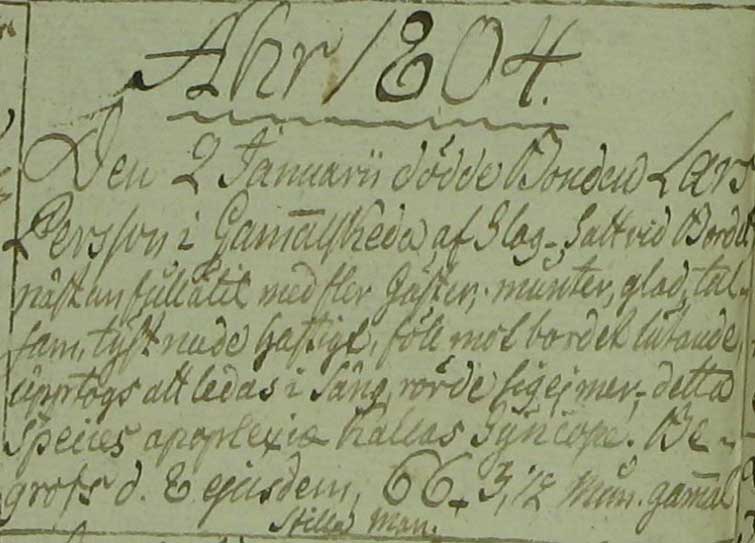 Åhr 1804.
Den 2 Januarii dödde Bonden Lars
Persson i Gam̄alsheda, af Slag, Satt vid Bordet
nästan fullätit med fler Gäster, munter, glad, tal-
sam, tystnade hastigt, föll mot bordet lutande,
upptogs att ledas i Säng, rörde sig ej mer, detta
Species apoplexiæ kallas Syncope. Be-
grofs d. 8 ejusdem, 66 3/12 mån. gam̄al
Stilla man.